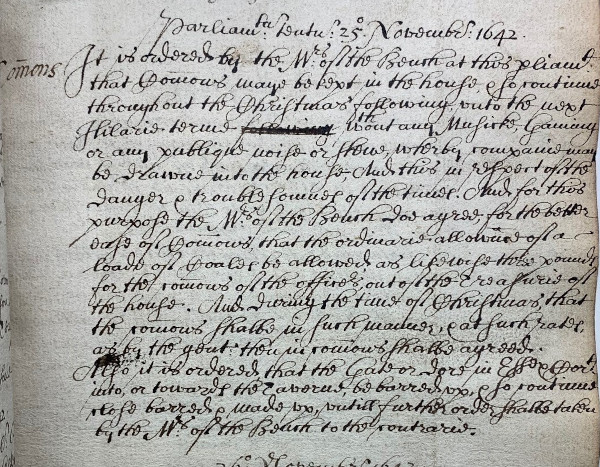 Parliamtū tentū: 25o. Novembr: 1642.
Comõns
It is ordered by the Mrs: of the Bench at this pliamt:
that Comons maye be kept in the house, & so continue
throughout the Christmas following, unto the next
Hilarie terme following, wthout any Musicke, Gaming
or any publique noise or shewe, wherby companie may
be drawne into the house And this in respect of the
danger & troublesomnes of the times. And for this
purpose the Mrs: of the Bench doe agree, for the better
ease of Comons, that the ordinarie allowãce of a
loade of Coales be allowed, as likewise three pounds
for the comons of the officers, out of the Treasurie of
the house. And during the time of Christmas, that
the comons shalbe in such manner, & at such rates,
as by the gent: then in comõns shalbe agreed.
Also it is ordered that the Gate or dore in Essex Cort
into, or towards the Taverne, be barred up, & so continue
close barred & made up, untill further order shalbe taken
by the Mrs: of the Bench to the contrarie.
26o. Novembr: 1642